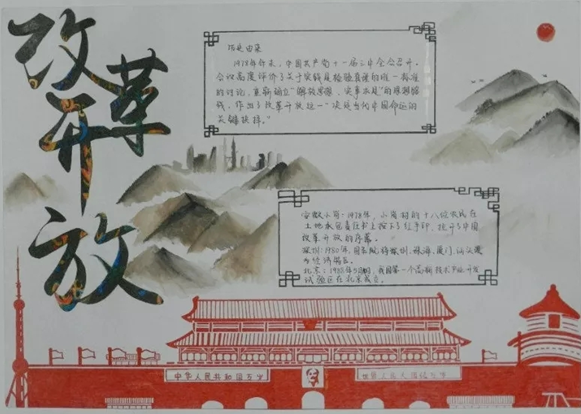 改革
开放
历史由来
1978年年末，中国共产党十一届三中全会召开。
会议高度评价了关于实践是检验真理的唯一标准
的讨论，重新确立"解放思想、实事求是"的思想路
线，作出了改革开放这一"决定当代中国命运的
关键抉择。"
安徽小岗：1978年，小岗村的十八位农民在
土地承包责任书上按下了红手印，拉开了中国
改革开放的序幕。
深圳：1980年，国务院将深圳、珠海、厦门、汕头
为经济特区。
北京：我国第一个高新技术产业开发
试验区在北京成立。
中华人民共和国万岁
世界人民大团结万岁